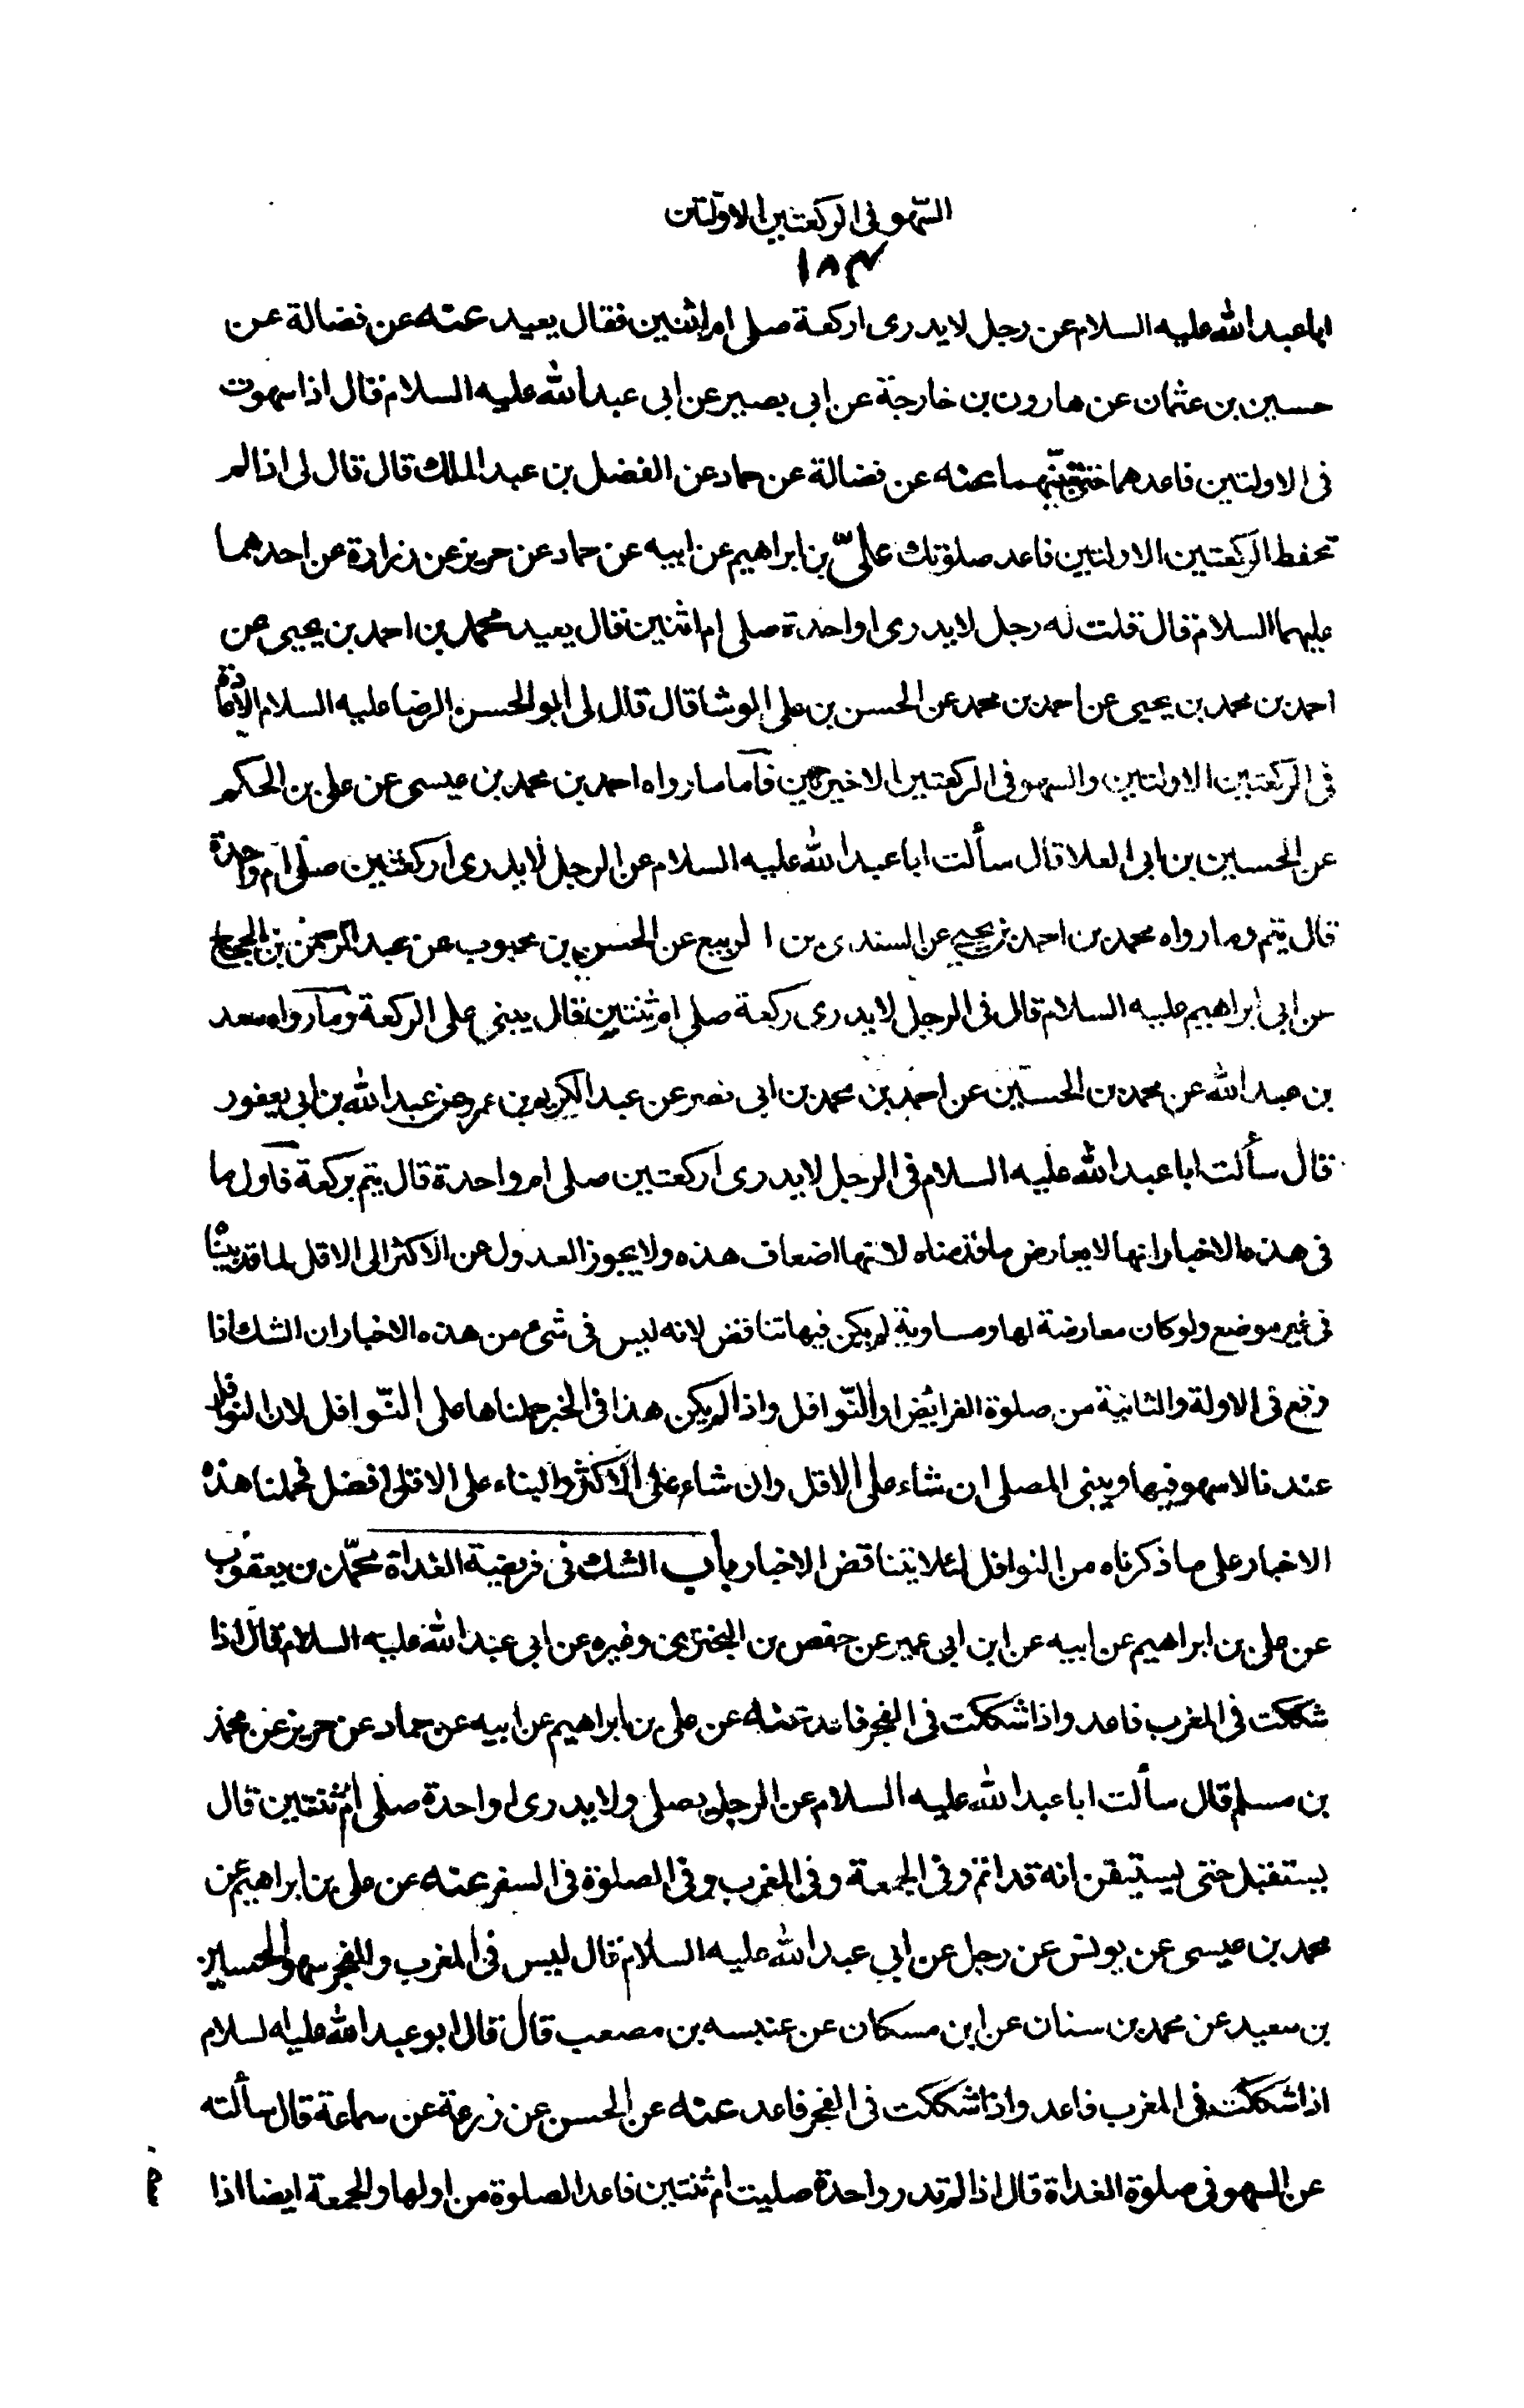 السّهو فى الركعتين الاوّلتين
١٨٣
ابا عبد الله عليه السلام عن رجل لا يدرى اركعة صلى ام اثنين فقال يعيد عنه عن فضالة عن
حسين بن عثمان عن هارون بن خارجة عن ابى بصير عن ابى عبد الله عليه السلام قال اذا سهوت
فى الاولتين فاعدهما حتى تثبتهما عنه عن فضالة عن حماد عن الفضل بن عبد الملك قال قال لى اذا لم
تحفظ الركعتين الاولتين فاعد صلوتك علىّ بن ابراهيم عن ابيه عن حماد عن حريز عن زرارة عن احدهما
عليهما السلام قال قلت له رجل لا يدرى اواحدة صلى ام اثنين قال يعيد محمد بن احمد بن يحيى عن
احمد بن محمد بن يحيى عن احمد بن محمد عن الحسن بن على الوشا قال قال لى ابو الحسن الرضا عليه السلام الاعادة
فى الركعتين الاولتين والسهو فى الركعتين الاخيرتين فاما ما رواه احمد بن محمد بن عيسى عن على بن الحكم
عن الحسين بن ابى العلا قال سألت ابا عبد الله عليه السلام عن الرجل لا يدرى اركعتين صلى ام واحدة
قال يتم وما رواه محمد بن احمد بن يحيى عن السندى بن الربيع عن الحسن بن محبوب عن عبد الرحمن بن الحجاج
عن ابى ابراهيم عليه السلام قال فى الرجل لا يدرى ركعة صلى ام ثنتين قال يبنى على الركعة وما رواه سعد
بن عبد الله عن محمد بن الحسين عن احمد بن محمد بن ابى نصر عن عبد الكريم بن عمرو عن عبد الله بن ابى يعفور
قال سألت ابا عبد الله عليه السلام فى الرجل لا يدرى اركعتين صلى ام واحدة قال يتم بركعة فاول ما
فى هذه الاخبار انها لا يعارض ما قدمناه لانها اضعاف هذه ولا يجوز العدول عن الاكثر الى الاقل لما قد بيناه
فى غير موضع ولو كان معارضة لها ومساوية لم يكن فيها تناقض لانه ليس فى شىء من هذه الاخبار ان الشك اذا
وقع فى الاولة والثانية من صلوة الفرائض او النّوافل واذا لم يكن هذا فى الخبر حملناها على النّوافل لان النوافل
عندنا لا سهو فيها ويبنى المصلى ان شاء على الاقل وان شاء على الاكثر والبناء على الاقل افضل فحملنا هذه
الاخبار على ما ذكرناه من النوافل لئلا يتناقض الاخبار باب الشك فى فريضة الغداة محمّد بن يعقوب
عن على بن ابراهيم عن ابيه عن ابن ابى عمير عن حفص بن البخترى وغيره عن ابى عبد الله عليه السلام قال اذا
شككت فى المغرب فاعد واذا شككت فى الفجر فاعد عنه عن على بن ابراهيم عن ابيه عن حماد عن حريز عن محمد
بن مسلم قال سألت ابا عبد الله عليه السلام عن الرجل يصلى ولا يدرى اواحدة صلى ام ثنتين قال
يستقبل حتى يستيقن انه قد اتم وفى الجمعة وفى المغرب وفى الصلوة فى السفر عنه عن على بن ابراهيم عن
محمد بن عيسى عن يونس عن رجل عن ابى عبد الله عليه السلام قال ليس فى المغرب والفجر سهو الحسين
بن سعيد عن محمد بن سنان عن ابن مسكان عن عنبسه بن مصعب قال قال ابو عبد الله عليه السلام
اذا شككت فى المغرب فاعد واذا شككت فى الفجر فاعد عنه عن الحسن عن زرعة عن سماعة قال سألته
عن السهو فى صلوة الغداة قال اذا لم تدر واحدة صليت ام ثنتين فاعد الصلوة من اولها والجمعة ايضا اذا